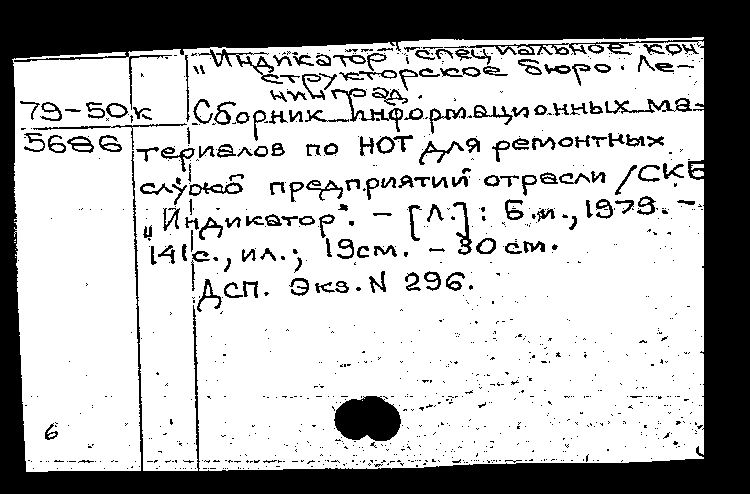 „Индикатор", специальное кон-
структорское бюро. Ле-
нинград.
79-50к Сборник информационных ма-
5686 териалов по НОТ для ремонтных
служб предприятий отрасли /СКБ
„Индикатор". – [Л.]: Б.и., 1979. –
141с., ил.; 19см. – 30 см.
ДСП. Экз. N 296.
6